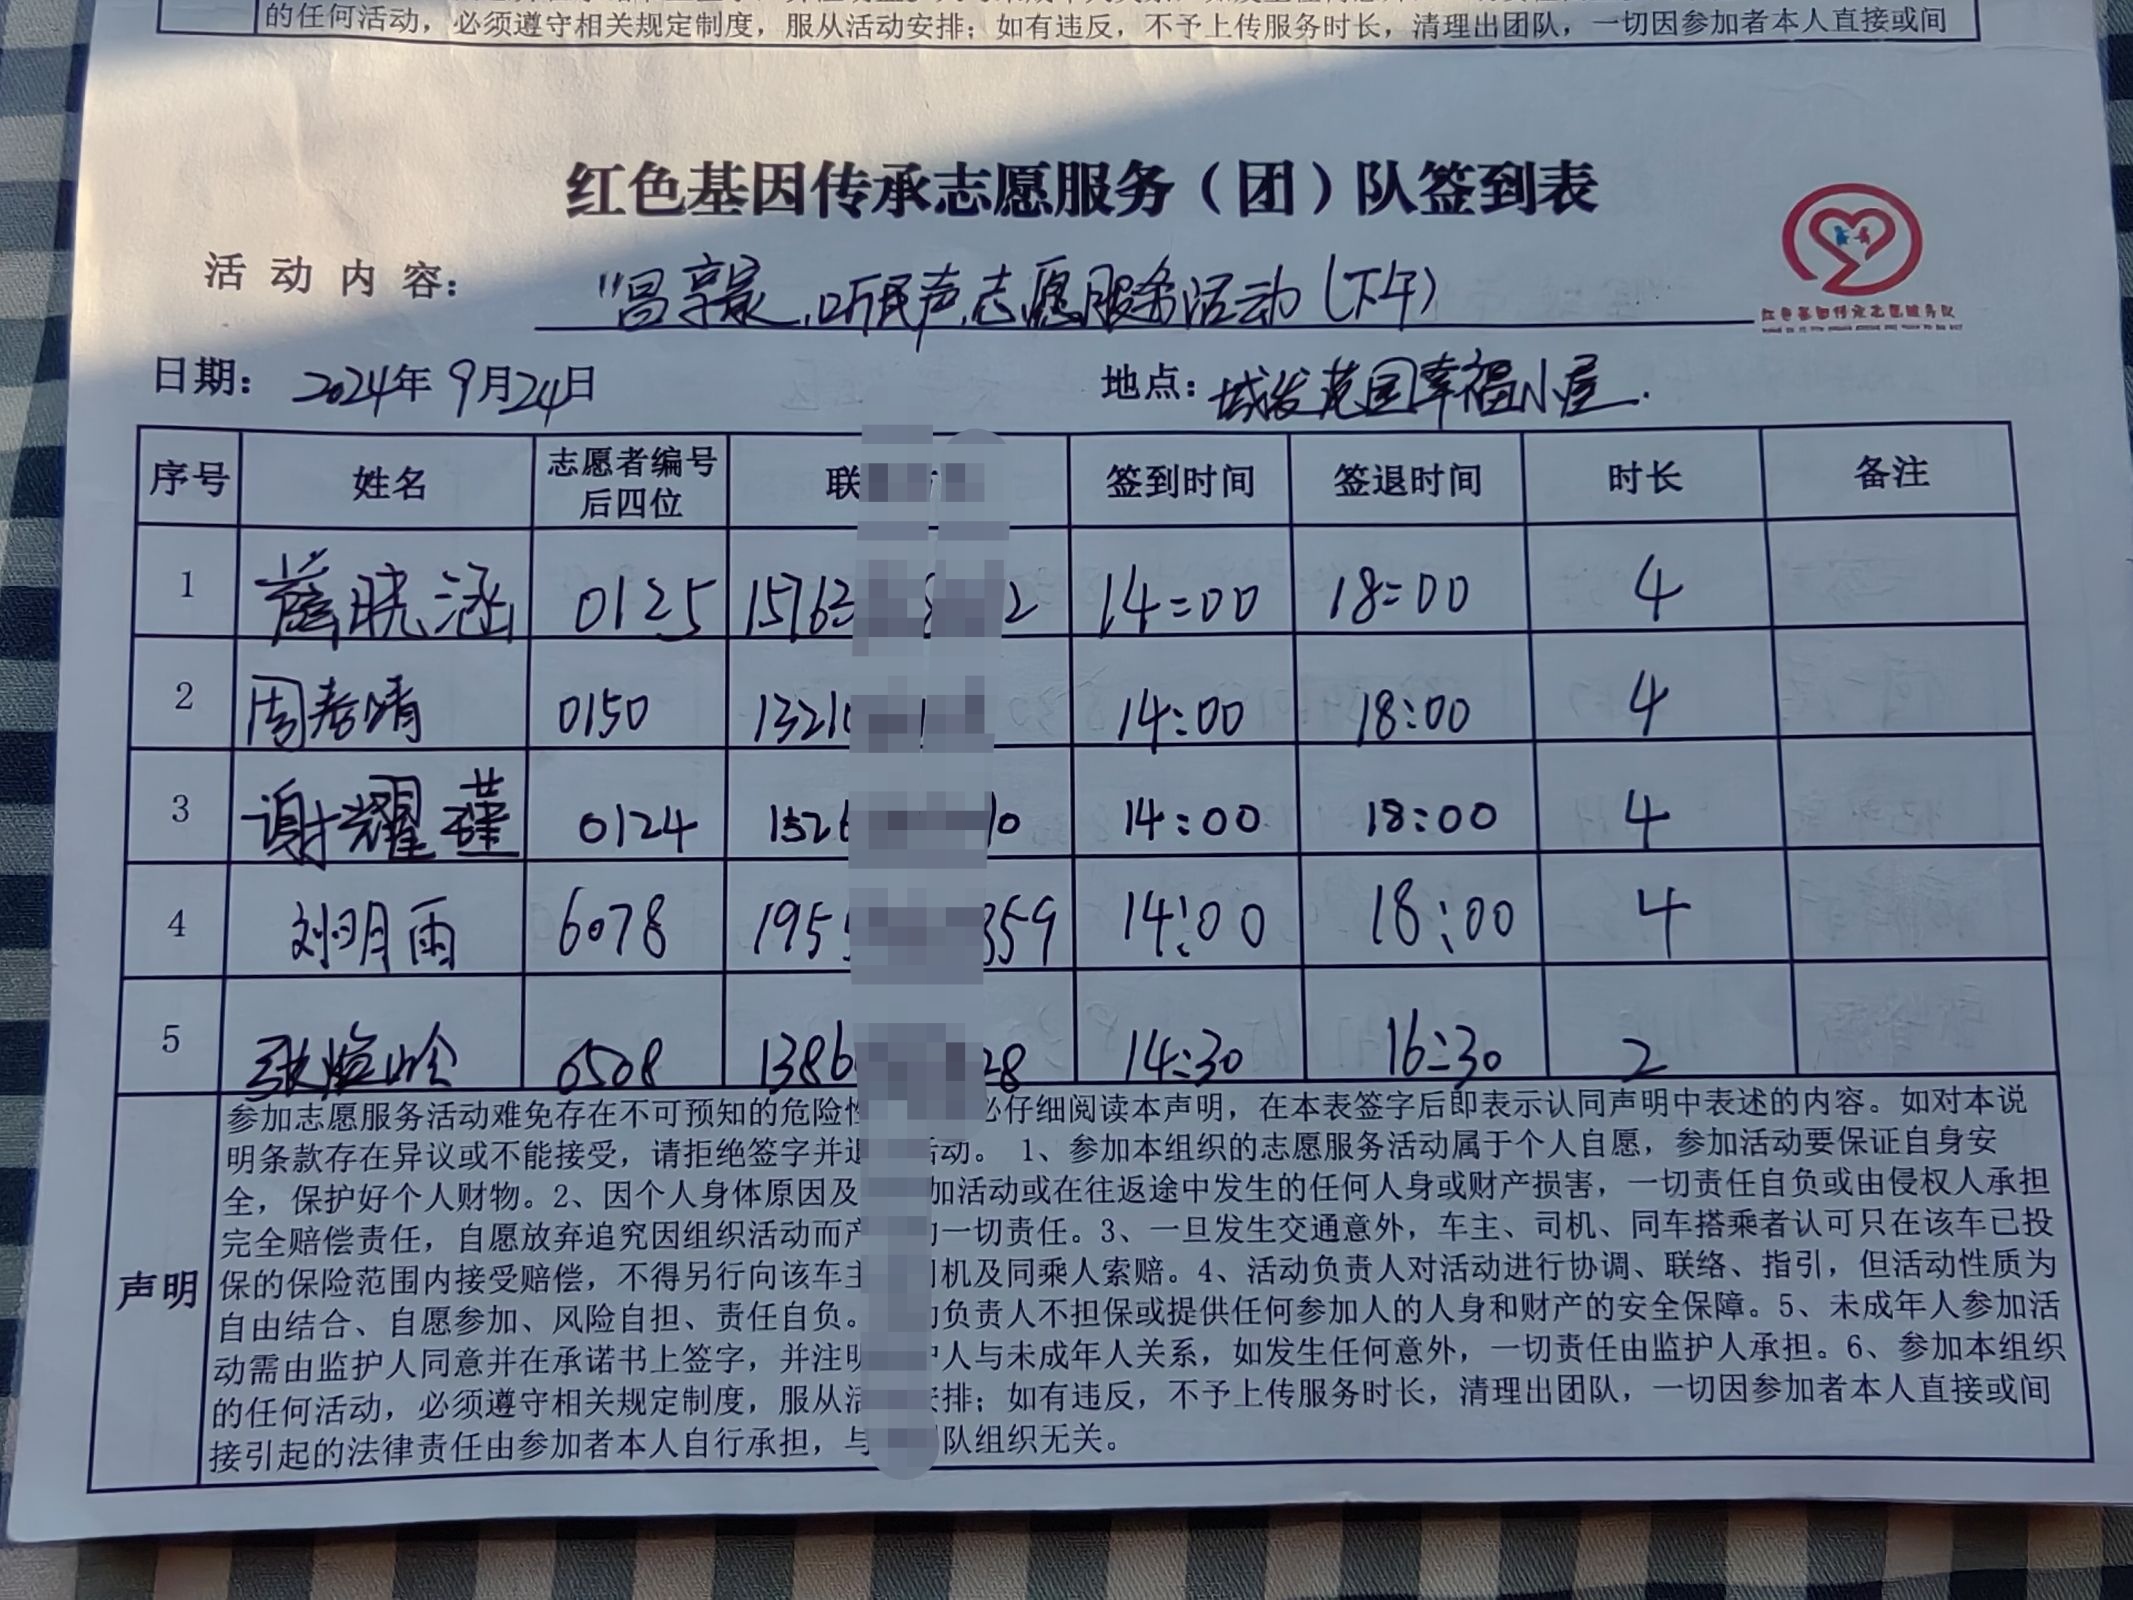 的任何活动，必须遵守相关规定制度，服从活动安排；如有违反，不予上传服务时长，清理出团队，一切因参加者本人直接或间
红色基因传承志愿服务（团）队签到表
活动内容： "昌享家，听民声，志愿服务活动（下午）
红色基因传承志愿服务队
日期： 2024年9月24日 地点：城发范园幸福小屋.
序号 姓名 志愿者编号后四位 联 签到时间 签退时间 时长 备注
1 薛晓涵 0125 15763 2 14:00 18:00 4
2 周春晴 0150 1321 14:00 18:00 4
3 谢耀瑾 0124 1526 10 14:00 18:00 4
4 刘明雨 6078 195 359 14:00 18:00 4
5 张 0508 1386 28 14:30 16:30 2
声明
参加志愿服务活动难免存在不可预知的危险性 必仔细阅读本声明，在本表签字后即表示认同声明中表述的内容。如对本说
明条款存在异议或不能接受，请拒绝签字并退 活动。 1、参加本组织的志愿服务活动属于个人自愿，参加活动要保证自身安
全，保护好个人财物。2、因个人身体原因及 加活动或在往返途中发生的任何人身或财产损害，一切责任自负或由侵权人承担
完全赔偿责任，自愿放弃追究因组织活动而产 的一切责任。3、一旦发生交通意外，车主、司机、同车搭乘者认可只在该车已投
保的保险范围内接受赔偿，不得另行向该车主 司机及同乘人索赔。4、活动负责人对活动进行协调、联络、指引，但活动性质为
自由结合、自愿参加、风险自担、责任自负。 的负责人不担保或提供任何参加人的人身和财产的安全保障。5、未成年人参加活
动需由监护人同意并在承诺书上签字，并注明 护人与未成年人关系，如发生任何意外，一切责任由监护人承担。6、参加本组织
的任何活动，必须遵守相关规定制度，服从活 安排；如有违反，不予上传服务时长，清理出团队，一切因参加者本人直接或间
接引起的法律责任由参加者本人自行承担，与 队组织无关。